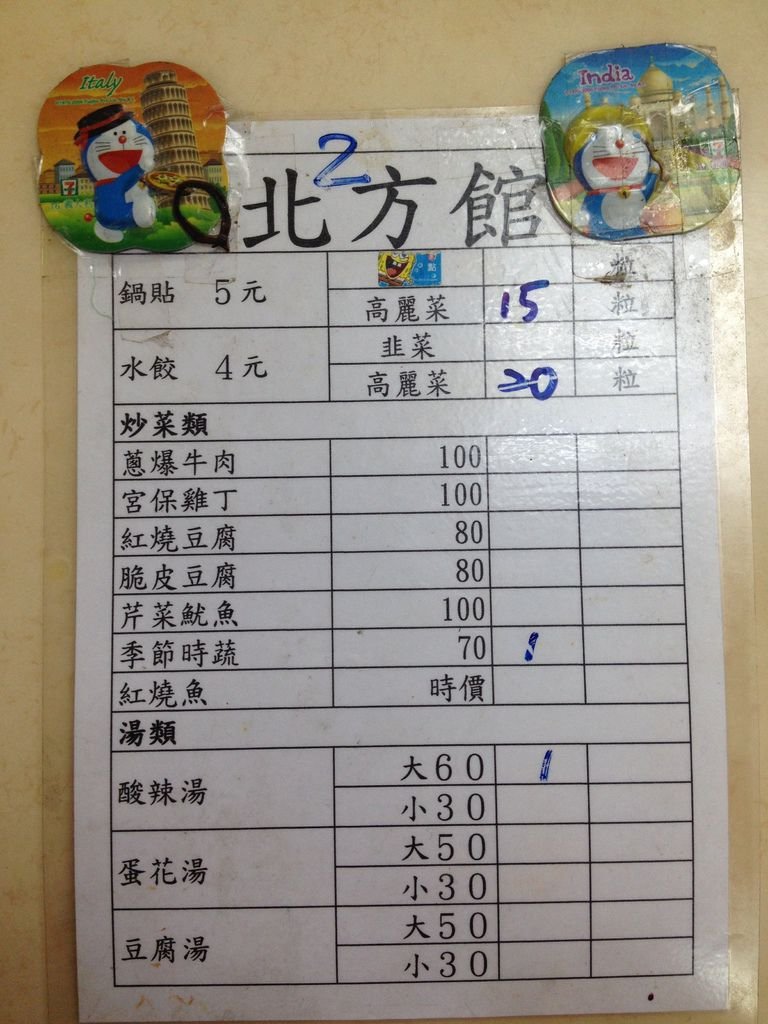 Italy
India
2
北方館
鍋貼 5元
點
粒
高麗菜 15 粒
水餃 4元
韭菜 粒
高麗菜 20 粒
炒菜類
蔥爆牛肉 100
宮保雞丁 100
紅燒豆腐 80
脆皮豆腐 80
芹菜魷魚 100
季節時蔬 70 1
紅燒魚 時價
湯類
酸辣湯 大60 1
小30
蛋花湯 大50
小30
豆腐湯 大50
小30